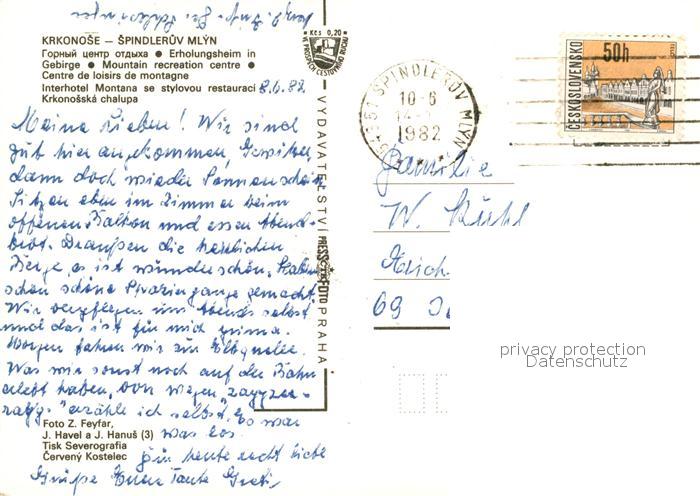 Kčs 0,20
KRKONOŠE – ŠPINDLERŮV MLÝN
Горный центр отдыха ● Erholungsheim in
Gebirge ● Mountain recreation centre ●
Centre de loisirs de montagne
Interhotel Montana se stylovou restaurací
Krkonošská chalupa
8.6.82
Meine Lieben! Wir sind
gut hier angekommen, Gewitter
dann doch wieder Sonnenschein
Sitzen eben im Zimmer beim
offenen Balkon und essen Abend-
brot. Draußen die herrlichen
Berge, es ist wunderschön. Haben
schon schöne Spaziergänge gemacht.
Wir verpflegen uns abends selbst
und das ist für mich prima.
Morgen fahren wir zur Elbquelle.
Was wir sonst noch auf der Bahn
erlebt haben, von wegen
erzähle ich selbst. Es war
was los.
Für heute recht liebe
Grüße Euer Tante Gretl
Foto Z. Feyfar,
J. Havel a J. Hanuš (3)
Tisk Severografia
Červený Kostelec
VYDAVATELSTVÍ PRESSFOTO PRAHA
543 51 ŠPINDLERŮV MLÝN
10-6
1982
ČESKOSLOVENSKO
50h
Familie
W.
69
privacy protection
Datenschutz